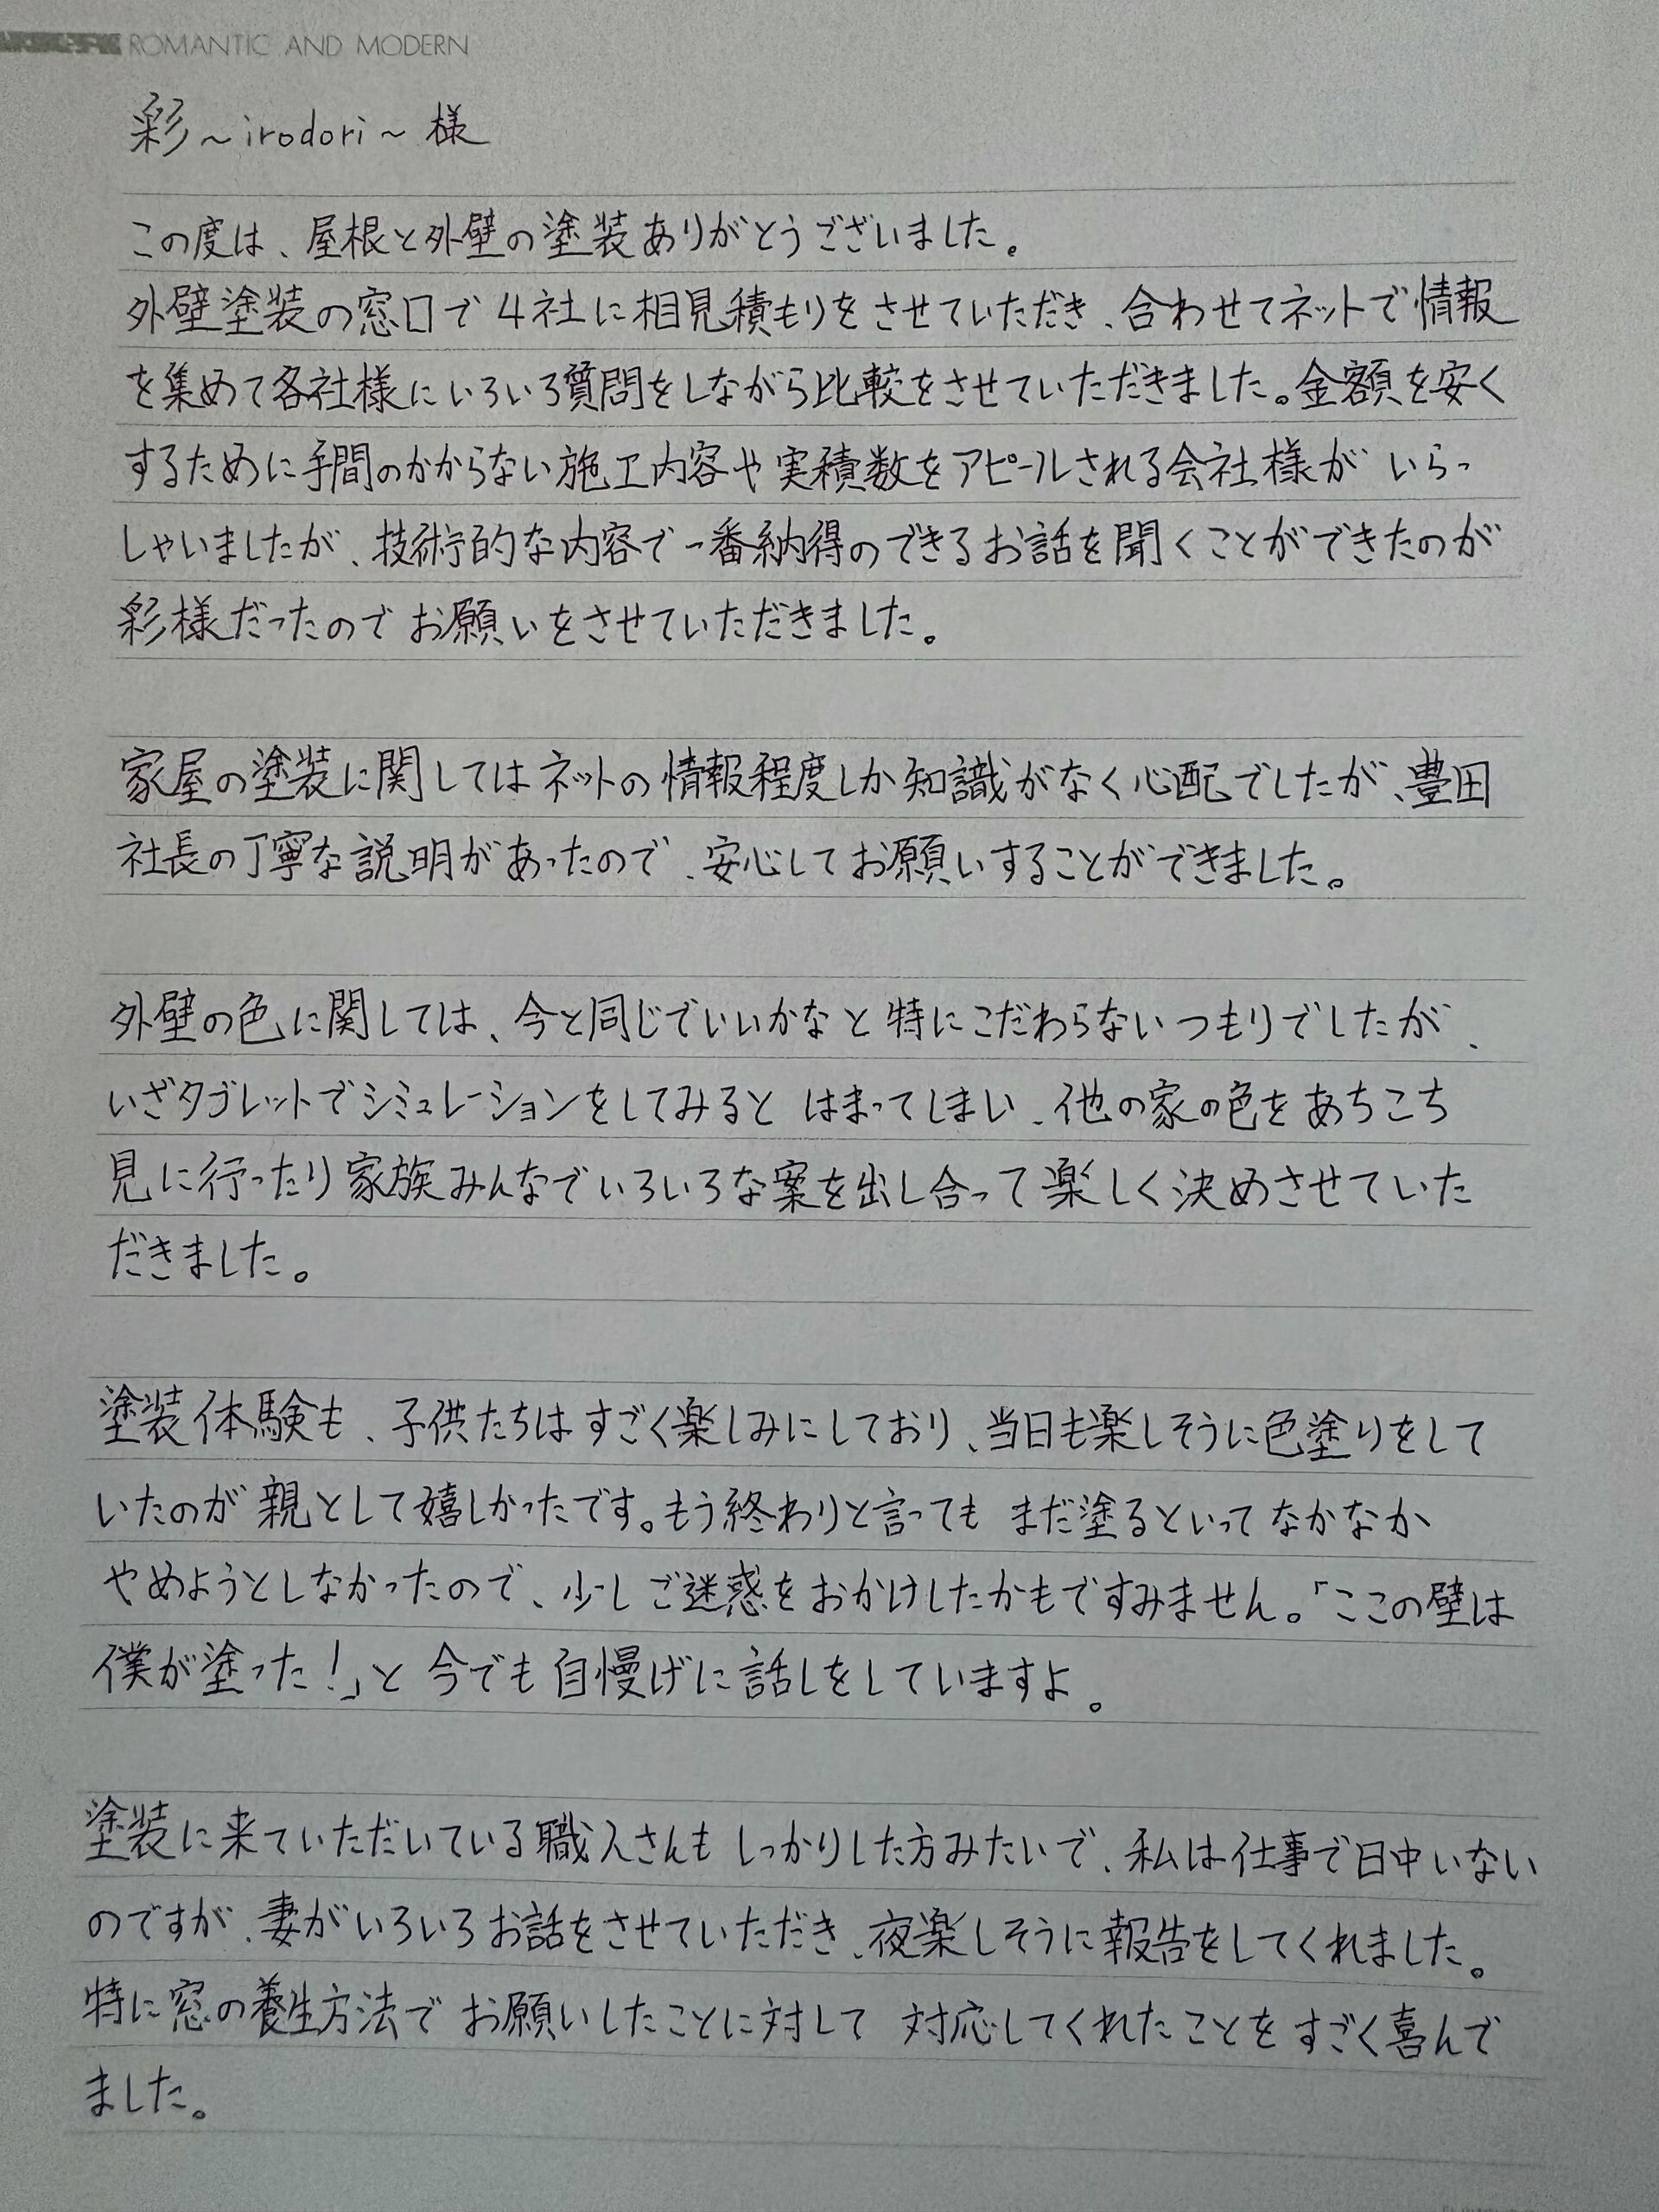 ROMANTIC AND MODERN
彩～irodori～様
この度は、屋根と外壁の塗装ありがとうございました。
外壁塗装の窓口で4社に相見積もりをさせていただき、合わせてネットで情報
を集めて各社様にいろいろ質問をしながら比較をさせていただきました。金額を安く
するために手間のかからない施工内容や実積数をアピールされる会社様がいらっ
しゃいましたが、技術的な内容で一番納得のできるお話を聞くことができたのが
彩様だったのでお願いをさせていただきました。
家屋の塗装に関してはネットの情報程度しか知識がなく心配でしたが、豊田
社長の丁寧な説明があったので、安心してお願いすることができました。
外壁の色に関しては、今と同じでいいかなと特にこだわらないつもりでしたが、
いざタブレットでシミュレーションをしてみるとはまってしまい、他の家の色をあちこち
見に行ったり家族みんなでいろいろな案を出し合って楽しく決めさせていた
だきました。
塗装体験も、子供たちはすごく楽しみにしており、当日も楽しそうに色塗りをして
いたのが親として嬉しかったです。もう終わりと言ってもまだ塗るといってなかなか
やめようとしなかったので、少しご迷惑をおかけしたかもですみません。「ここの壁は
僕が塗った!」と今でも自慢げに話しをしていますよ。
塗装に来ていただいている職人さんもしっかりした方みたいで、私は仕事で日中いない
のですが、妻がいろいろお話をさせていただき、夜楽しそうに報告をしてくれました。
特に窓の養生方法でお願いしたことに対して対応してくれたことをすごく喜んで
ました。